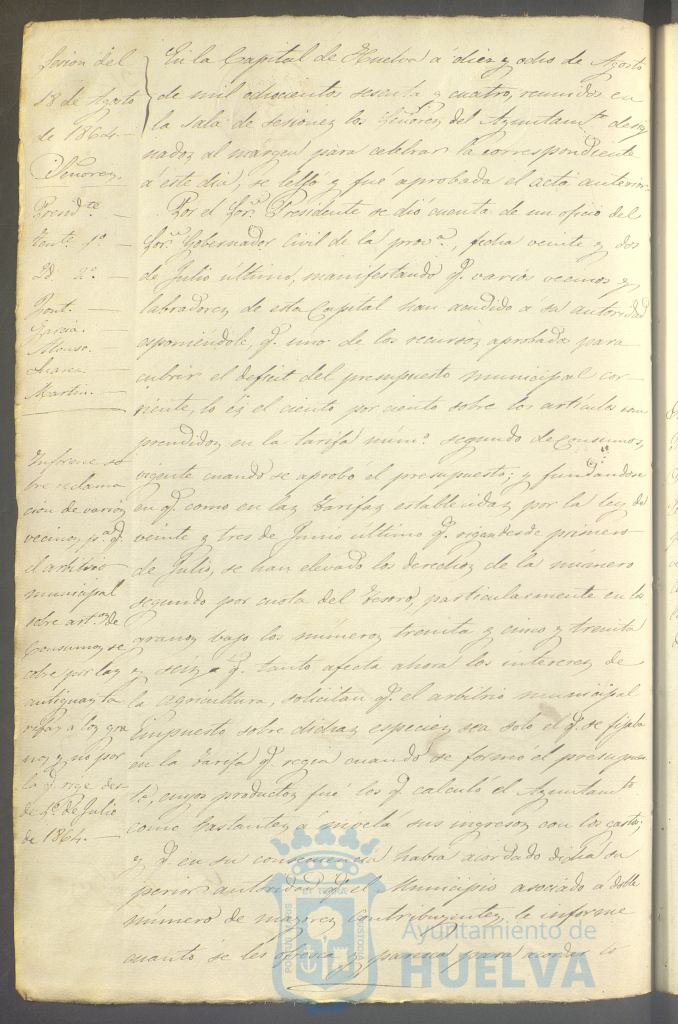 Sesion del
18 de Agosto
de 1864.
Señores.
Presid.te
Tente. 1º
Id. 2º
Pont.
Garcia.
Alonso.
Suarez
Martin.
Informe so
bre reclama
cion de varios
vecinos, p.a q.e
el arbitrio
municipal
sobre art.os de
Consumos, se
cobre por las
antiguas ta
rifas a los gra
nos, y no por
la q.e rige des
de 1º de Julio
de 1864.
En la Capital de Huelva á diez y ocho de Agosto
de mil ochocientos sesenta y cuatro, reunidos en
la Sala de Sesiones los Señores del Ayuntam.to desig
nados al margen para celebrar la correspondiente
á este dia, se leyó y fué aprobada el acta anterior.
Por el Sor. Presidente se dió cuenta de un oficio del
Sor. Gobernador Civil de la prov.a, fecha veinte y dos
de Julio último, manifestando q.e varios vecinos y
labradores de esta Capital han acudido á su autoridad
esponiéndole, q.e uno de los recursos aprobados para
cubrir el deficit del presupuesto municipal cor-
riente, lo és el ciento por ciento sobre los artículos com
prendidos en la tarifa núm.º segundo de consumos,
vigente cuando se aprobó el presupuesto; y fundandose
en q.e como en las tarifas establecidas por la ley de
veinte y tres de Junio último q.e rigen desde primero
de Julio, se han elevado los derechos de la número
segundo por cuota del Tesoro, particularmente en los
granos bajo los números treinta y cinco y treinta
y seis, q.e tanto afecta ahora los intereses de
la agricultura, solicitan q.e el arbitrio municipal
impuesto sobre dichas especies sea solo el q.e se fijaba
en la tarifa q.e regia cuando se formó el presupues
to, cuyos productos fué los q.e calculó el Ayuntam.to
como bastantes á nivelar sus ingresos con los gastos;
y q.e en su consecuencia habia acordado dicha su
perior autoridad q.e el Municipio asociado á doble
número de mayores contribuyentes, le informe
cuanto se les ofrezca y parezca para acordar lo
Ayuntamiento de
HUELVA